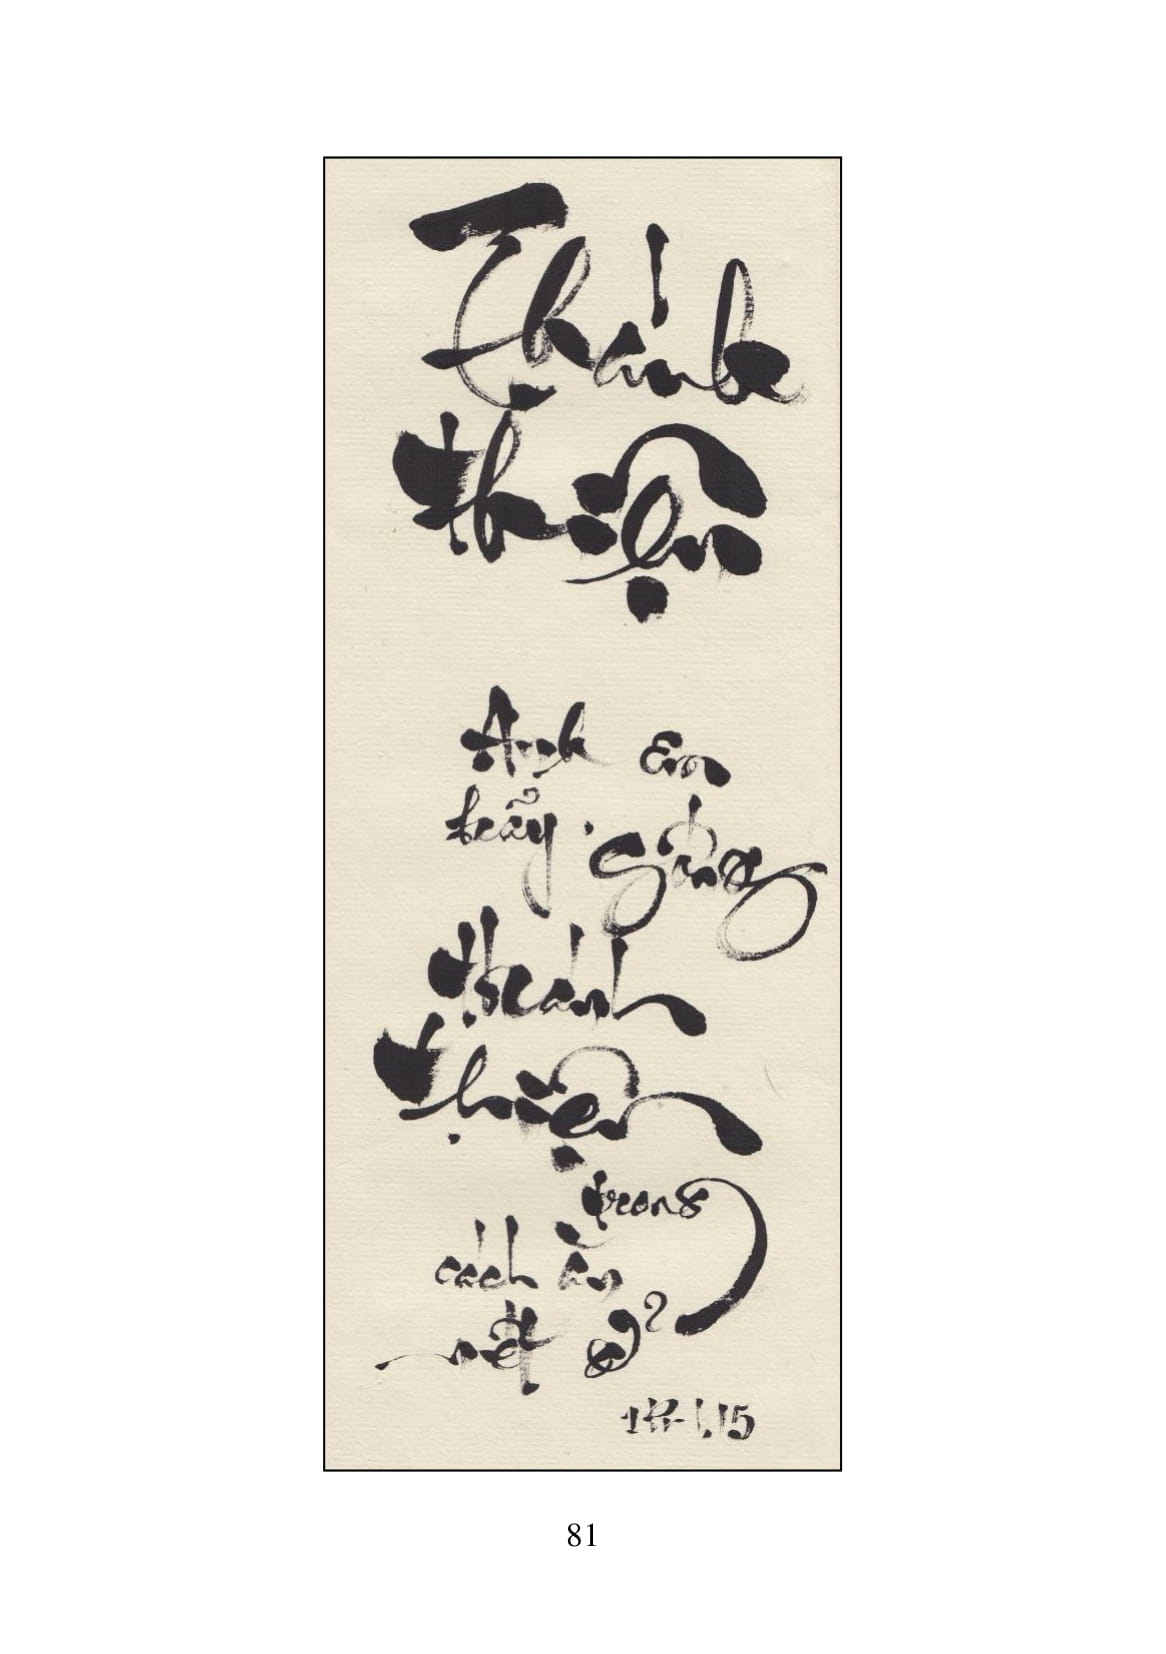 Thánh
thiện
Anh em
hãy sống
thánh
thiện
trong
cách ăn
nết ở
1Pr 1,15
81